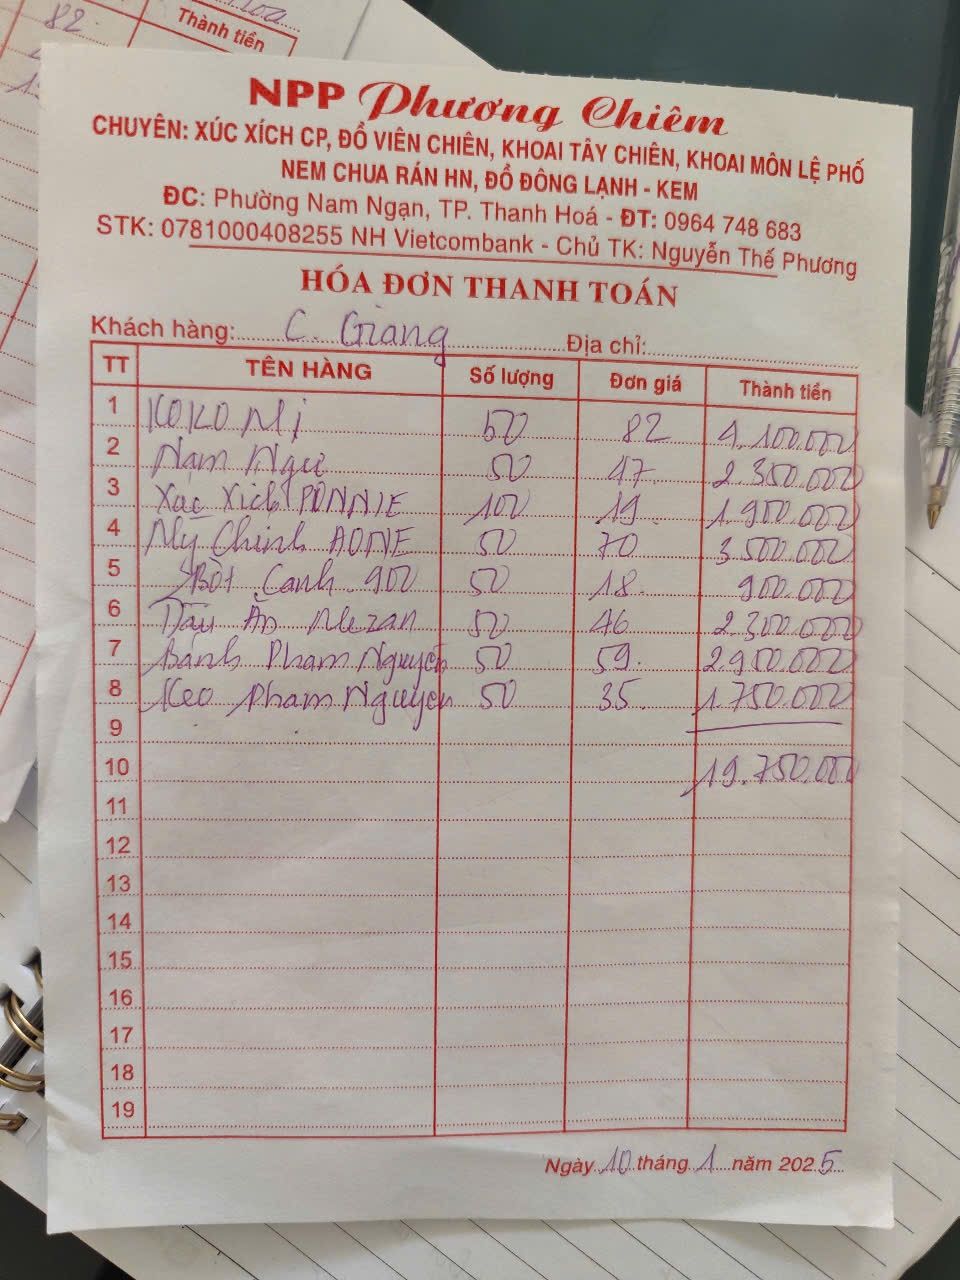 82
Thành tiền
NPP Phương Chiêm
CHUYÊN: XÚC XÍCH CP, ĐỒ VIÊN CHIÊN, KHOAI TÂY CHIÊN, KHOAI MÔN LỆ PHỐ
NEM CHUA RÁN HN, ĐỒ ĐÔNG LẠNH - KEM
ĐC: Phường Nam Ngạn, TP. Thanh Hoá - ĐT: 0964 748 683
STK: 0781000408255 NH Vietcombank - Chủ TK: Nguyễn Thế Phương
HÓA ĐƠN THANH TOÁN
Khách hàng: C. Giang Địa chỉ:
TT TÊN HÀNG Số lượng Đơn giá Thành tiền
1 KOKOMI 50 82 4.100.000
2 Nam Ngư 50 47 2.350.000
3 Xúc Xích PONNIE 100 19 1.900.000
4 Mỳ Chính AONE 50 70 3.500.000
5 Bột Canh 900 50 18 900.000
6 Dầu Ăn Mezan 50 46 2.300.000
7 Bánh Phạm Nguyên 50 59 2.950.000
8 Kẹo Phạm Nguyên 50 35 1.750.000
9
10 19.750.000
11
12
13
14
15
16
17
18
19
Ngày 10 tháng 1 năm 2025